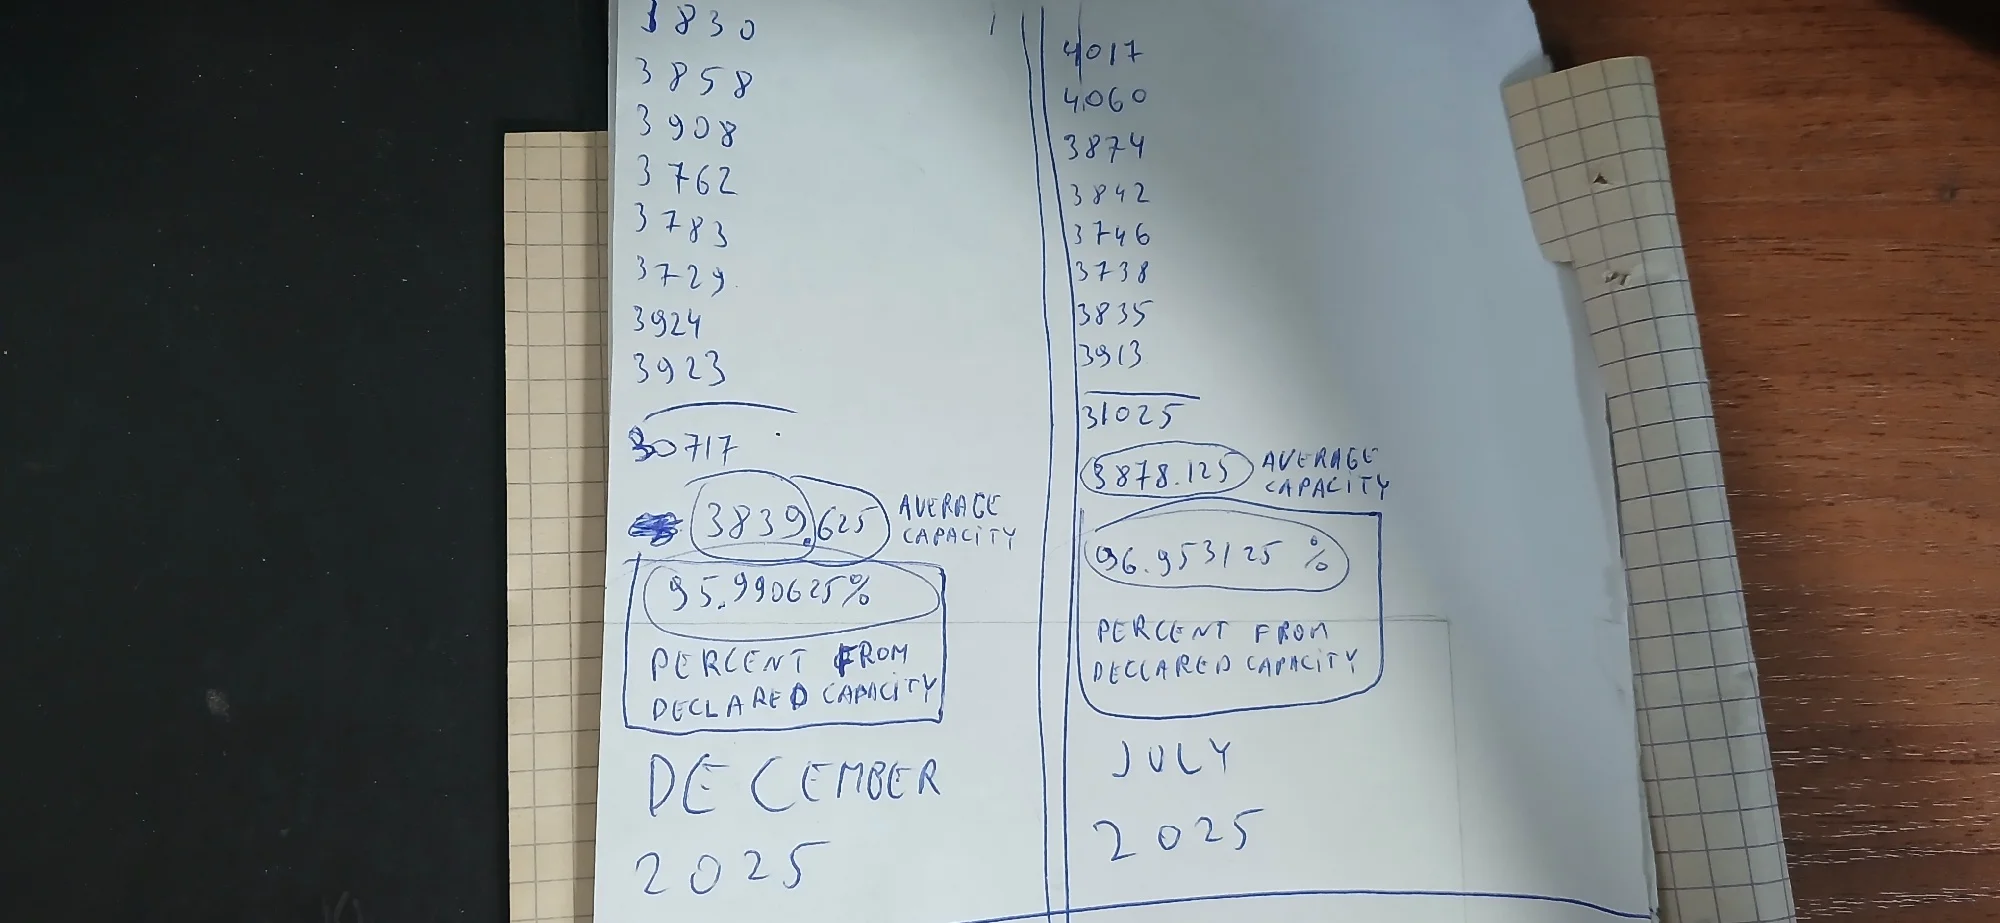 3830
3858
3908
3762
3783
3729
3924
3923
30717
3839.625
AVERAGE
CAPACITY
95.990625%
PERCENT FROM
DECLARED CAPACITY
DECEMBER
2025
4017
4060
3874
3842
3746
3738
3835
3913
31025
3878.125
AVERAGE
CAPACITY
96.953125 %
PERCENT FROM
DECLARED CAPACITY
JULY
2025